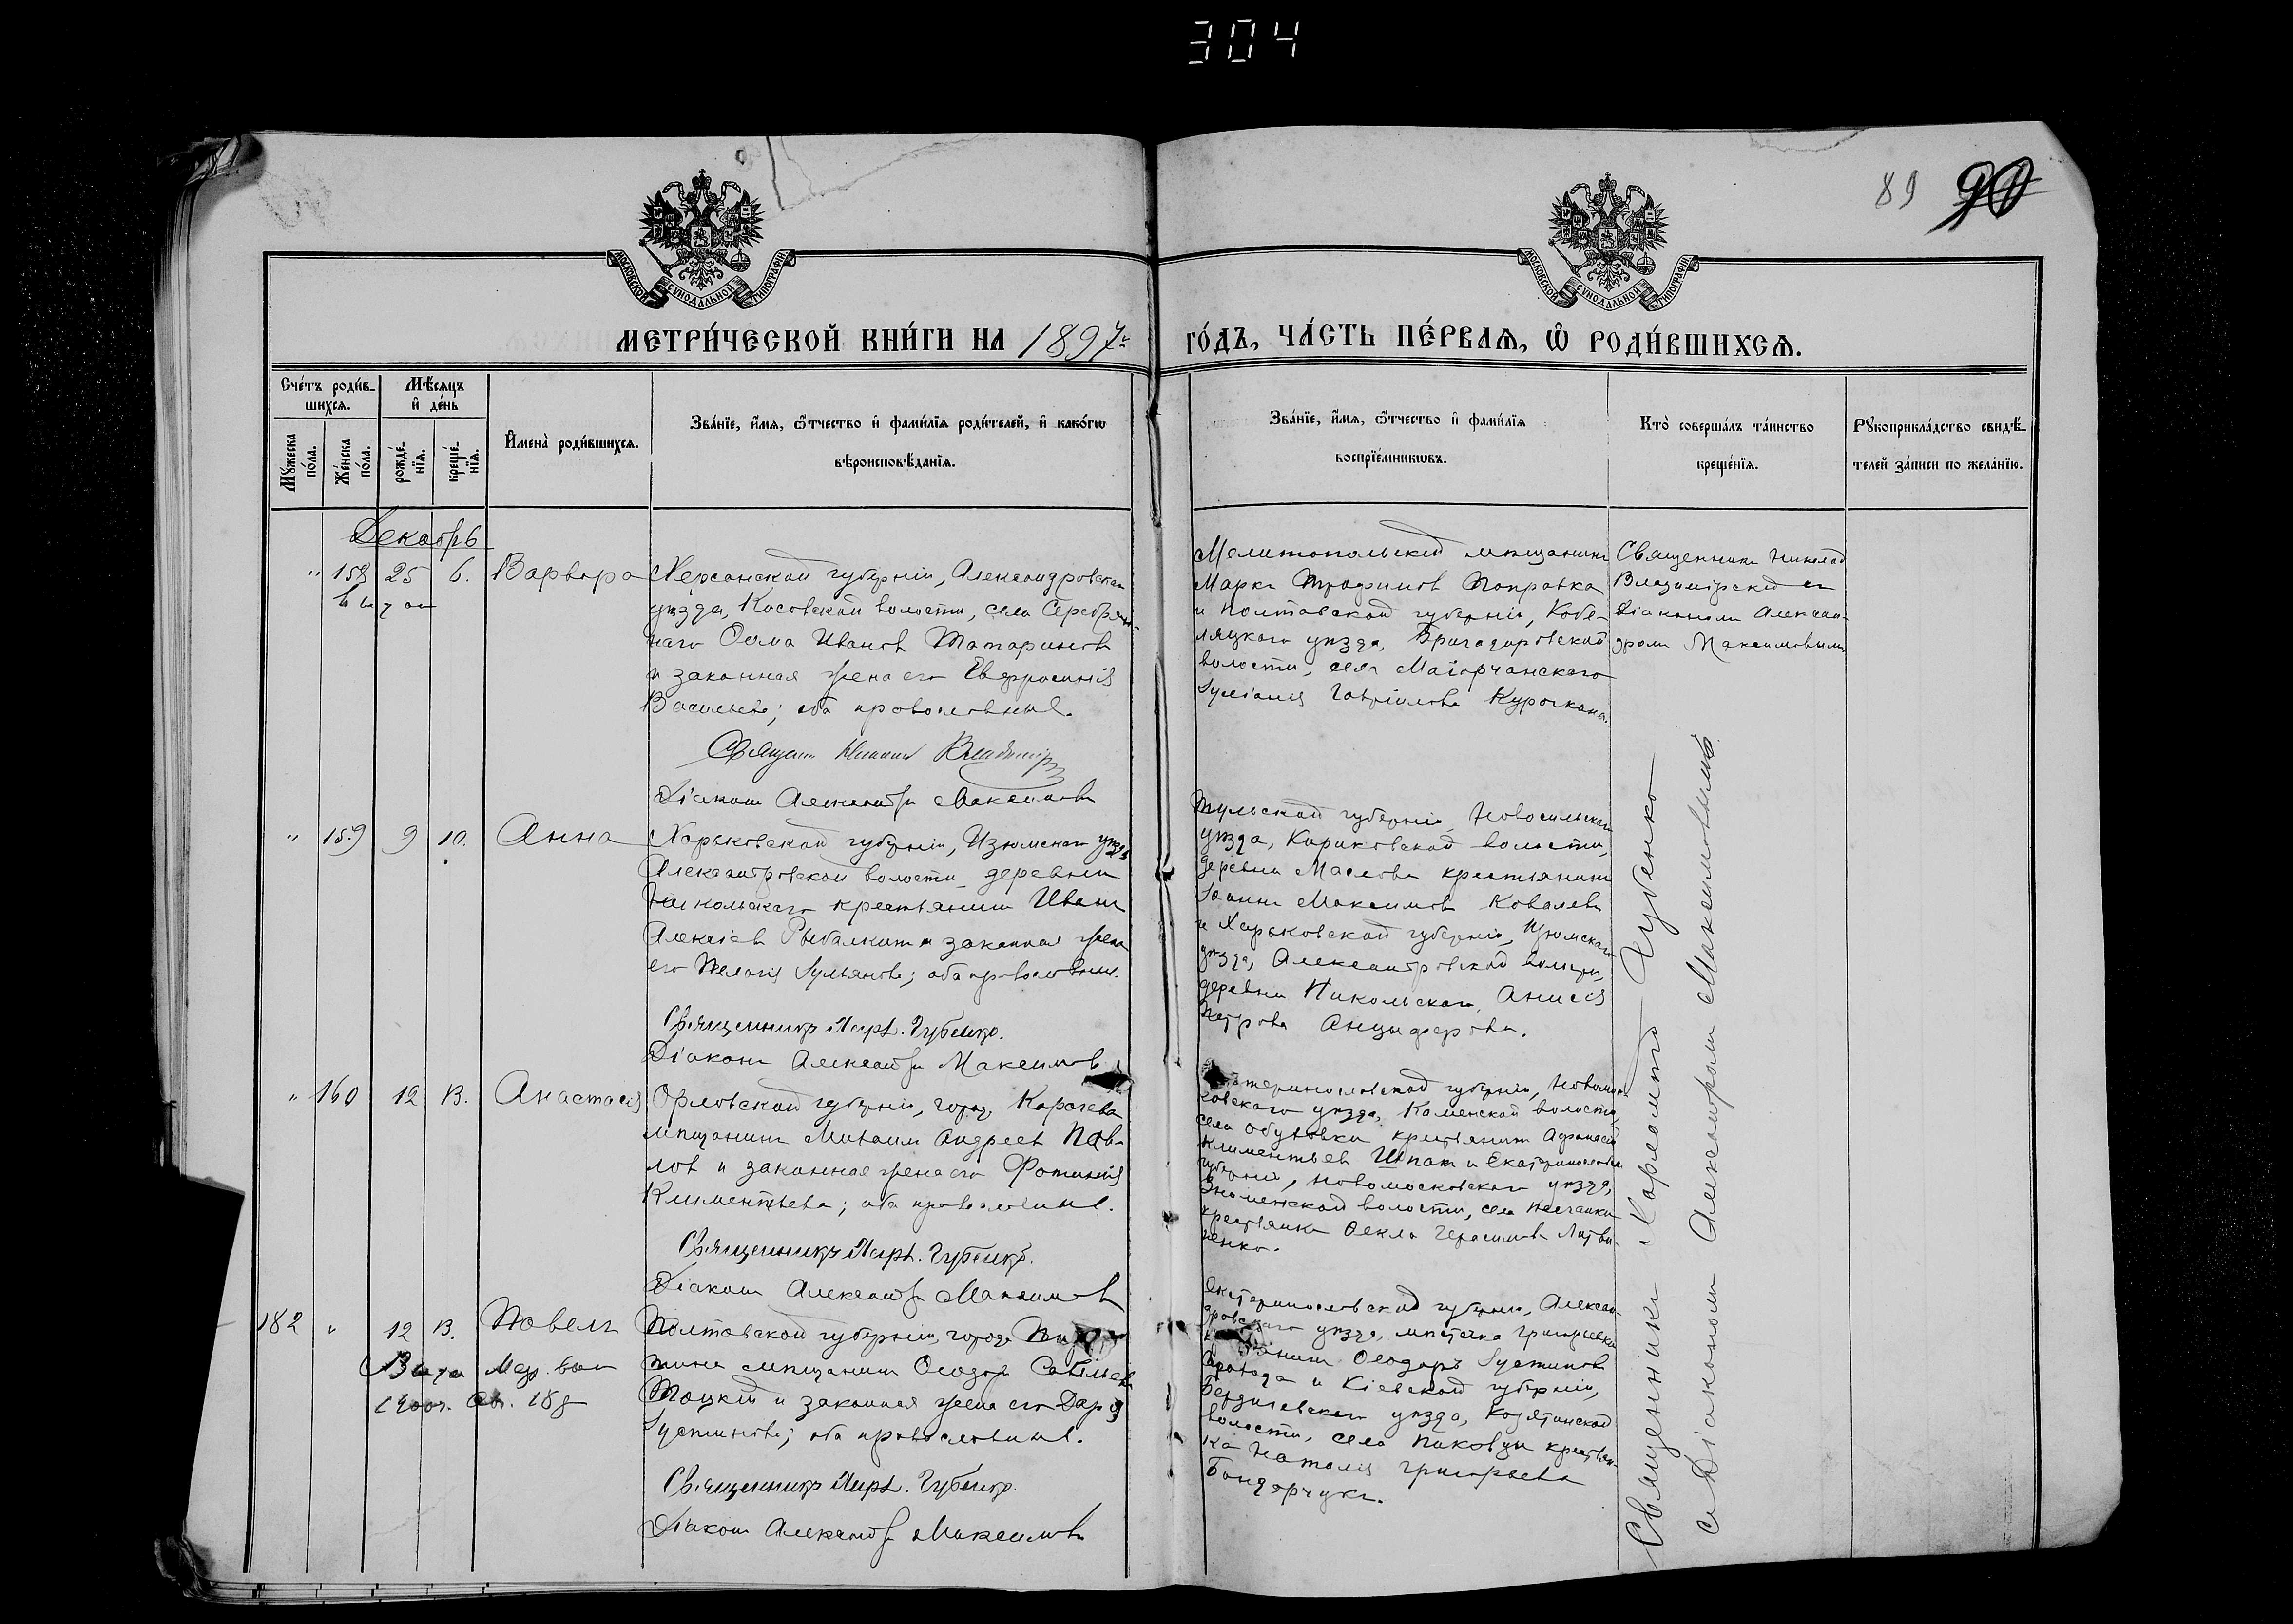 304
89 90
МОСКОВСКОЙ СѴНОДАЛЬНОЙ ТИПОГРАФІИ
МОСКОВСКОЙ СѴНОДАЛЬНОЙ ТИПОГРАФІИ
МЕТРИ́ЧЕСКОЙ КНИ́ГИ НА 1897 г.
ГО́ДЪ, ЧА́СТЬ ПЕ́РВАѦ, Ѡ҆ РОДИ́ВШИХСѦ.
Сче́тъ роди́в-
шихсѧ.
Мѣ́сѧцъ
и҆ де́нь
Мꙋ́жеска по́ла.
Же́нска по́ла.
рожде́-нїѧ.
креще́-нїѧ.
И҆мена̀ роди́вшихсѧ.
Зва́нїе, и҆́мѧ, ѻ҆́тчество и҆ фами́лїѧ роди́телей, и҆ како́гѡ
вѣроисповѣ́данїѧ.
Зва́нїе, и҆́мѧ, ѻ҆́тчество и҆ фами́лїѧ
воспрїе́мникѡвъ.
Кто̀ соверша́лъ та́инство
креще́нїѧ.
Рꙋкоприкла́дство свидѣ́-
телей за́писи по жела́нїю.
Декабрь
" 158 25 6. Варвара
Херсонской губерніи, Александровскаго
уѣзда, Косовской волости, села Серебрян-
наго Ѳома Иванов Татаринов
и законная жена его Евфросинія
Васильева; оба православные.
Священ Николай Владимір
Діакон Александр Максимов
Мелитопольскій мѣщанин
Марк Трофимов Поправка
и Полтавской губерніи, Кобе-
ляцкаго уѣзда, Бригадировской
волости, села Маіорчанскаго
Іуліанія Гавріилова Курочкина.
Священник Николай
Владимірскій с
діаконом Алексан-
дром Максимовым
" 159 9 10. Анна
Харьковской губерніи, Изюмскаго уѣзда
Александровской волости деревни
Никольскаго крестьянин Иван
Алексіев Рыбалкин и законная жена
его Пелагія Іульянова; оба православные.
Священникъ Харл. Губенко.
Діакон Александр Максимов
Тульской губерніи, Новосильскаго
уѣзда, Кириковской волости,
деревни Маслова крестьянин
Іоанн Максимов Ковалев
и Харьковской губерніи, Изюмскаго
уѣзда, Александровской волости,
деревни Никольскаго, Анисія
Петрова Анцыферова.
" 160 12 13. Анастасія
Орловской губерніи, город Карачева
мѣщанин Михаил Андреев Пав-
лов и законная жена его Фотинія
Климентьева; оба православные.
Священникъ Харл. Губенко.
Діакон Александр Максимов
Екатеринославской губерніи, Новомос-
ковскаго уѣзда, Каменской волости,
села Обуховки крестьянин Афанасій
Климентьев Шпат и Екатеринославск.
губерніи, Новомосковскаго уѣзда,
Знаменской волости, села Песчанки
крестьянка Ѳекла Герасимова Литви-
ненко.
182 " 12 13. Павелъ
Полтавской губерніи, города
тина мѣщанин Ѳеодор Савельев
Тоцкій и законная жена его Дарія
Іустинова; оба православные.
Священникъ Харл. Губенко.
Діакон Александр Максимов
Екатеринославской губерніи, Алексан-
дровскаго уѣзда, мѣстечка Григорьевки
Ѳеодоръ Іустинов
и Кіевской губерніи,
Бердичевскаго уѣзда, Козятинской
волости, села Пиковци крестьян-
ка Наталія Григорьева
Бондарчук.
Священник Харлампій Губенко
с Діаконом Александром Максимовымъ